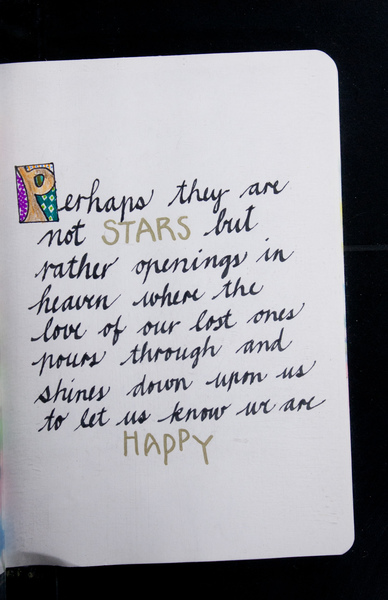 Perhaps they are
not STARS but
rather openings in
heaven where the
love of our lost ones
pours through and
shines down upon us
to let us know we are
HAPPY